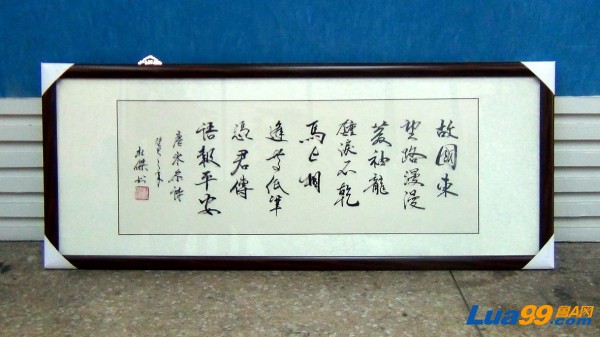 故園東
望路漫漫
雙袖龍
鍾淚不乾
馬上相
逢無紙筆
憑君傳
語報平安
唐岑參詩
Lua99
.com